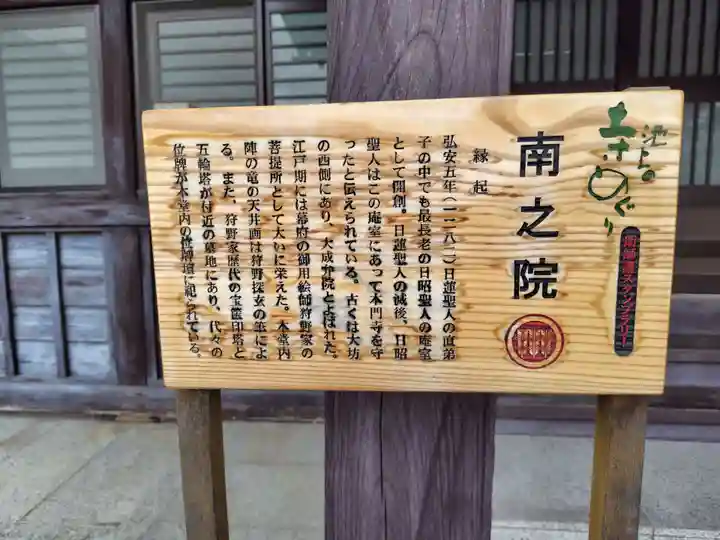 池上の
寺めぐり
南之院
縁起
弘安五年(一二八二)日蓮聖人の直弟
子の中でも最長老の日昭聖人の庵室
として開創。日蓮聖人の滅後、日昭
聖人はこの庵室にあって本門寺を守
ったと伝えられている。古くは大坊
の西側にあり、大成弁院とよばれた。
江戸期には幕府の御用絵師狩野家の
菩提所として大いに栄えた。本堂内
陣の竜の天井画は狩野探玄の筆によ
る。また、狩野家歴代の宝篋印塔と
五輪塔が付近の墓地にあり、代々の
位牌が本堂内の位牌壇に祀られている。